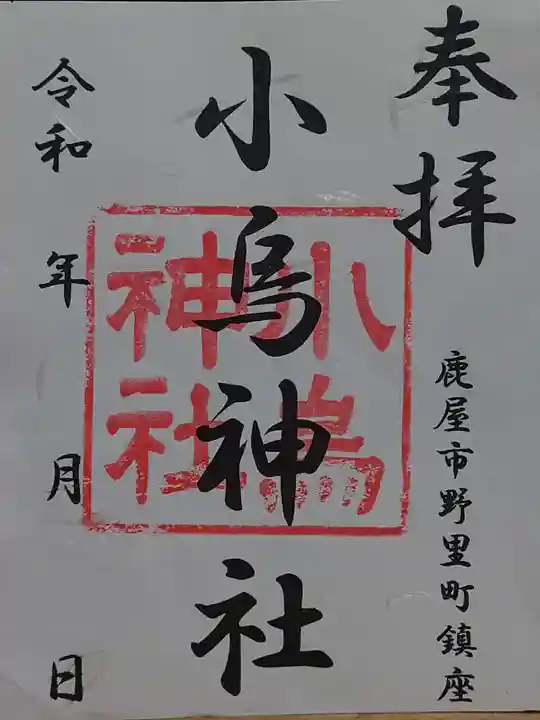 奉拝
鹿屋市野里町鎮座
小烏神社
小烏
神社
令和 年 月 日